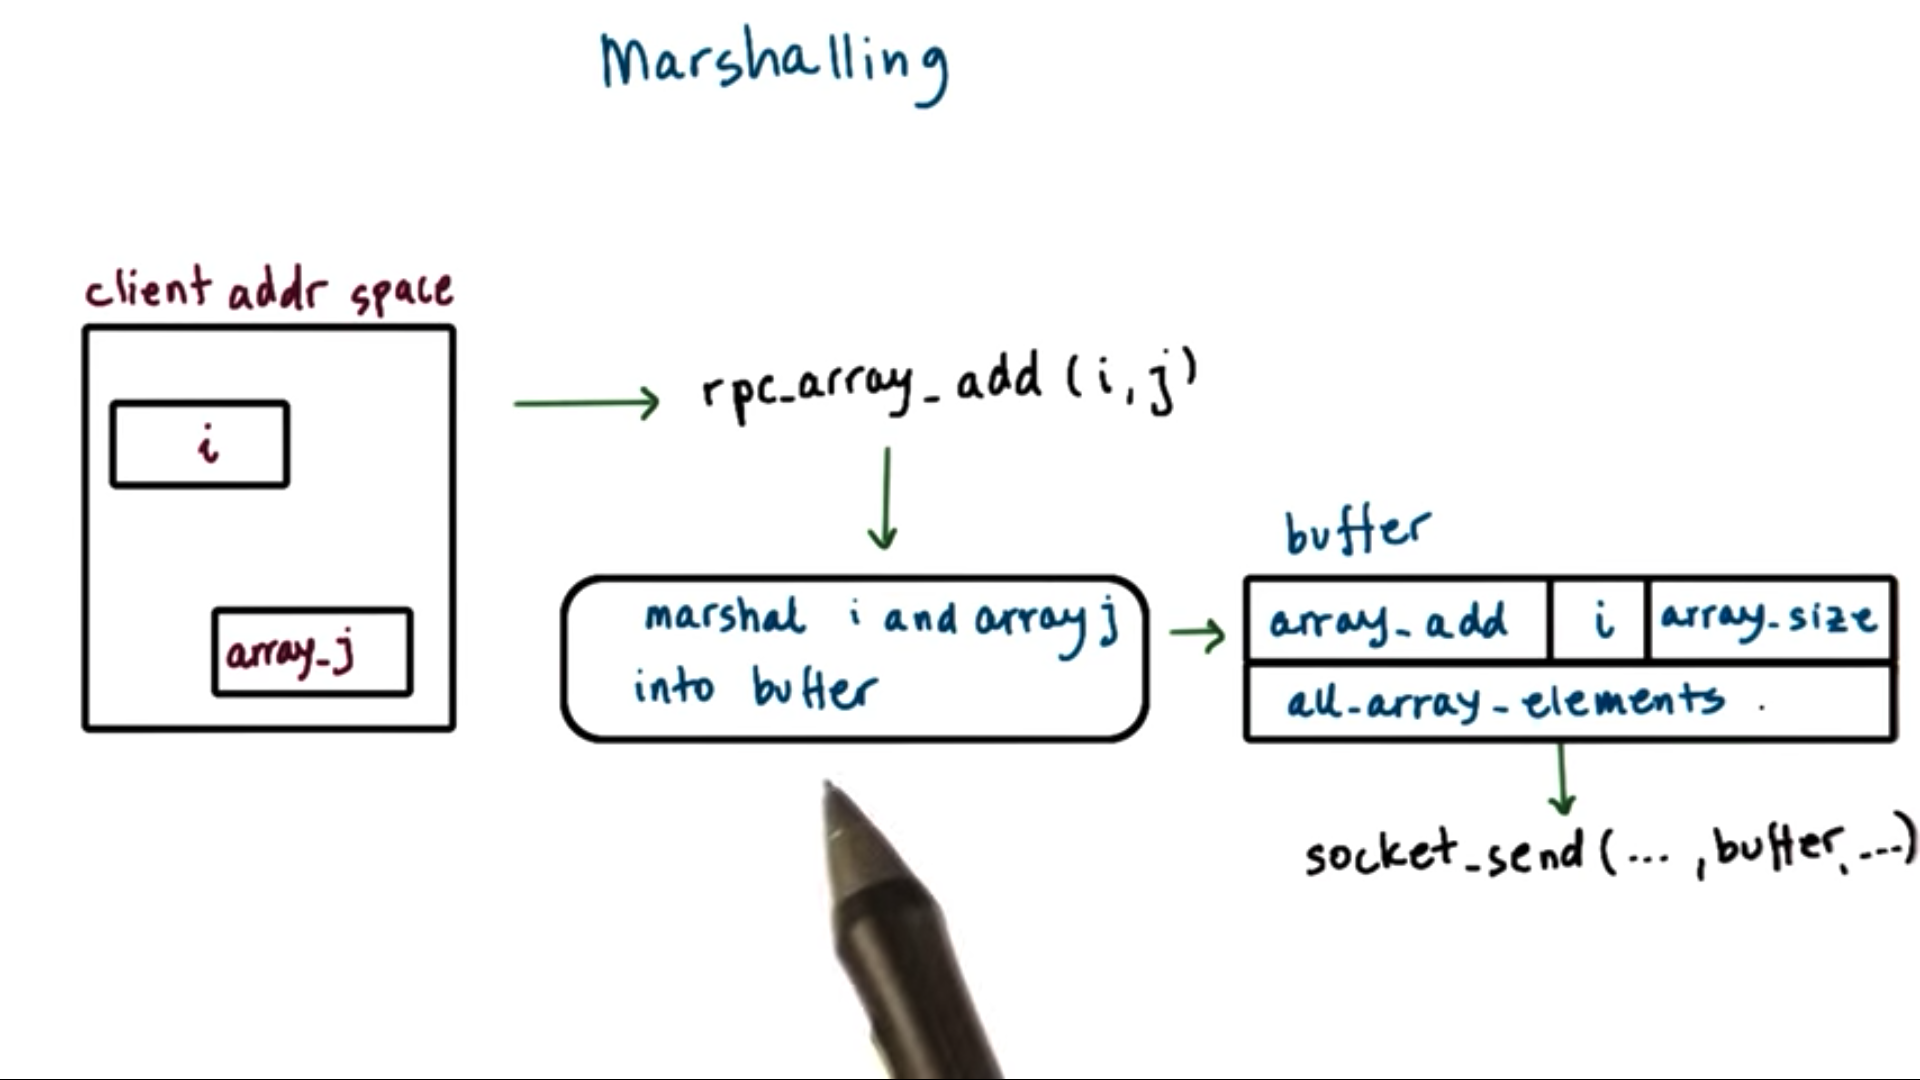 Marshalling
client addr space
i
array_j
rpc_array_add (i, j)
marshal i and array j
into buffer
buffer
array_add i array_size
all_array_elements .
socket_send (... , buffer, ...)